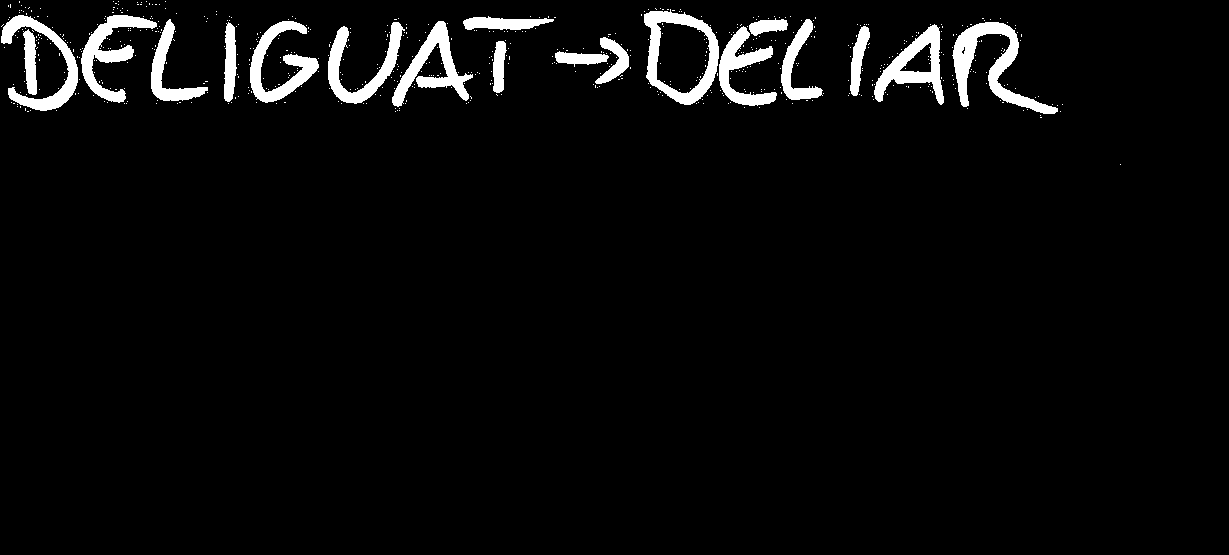 DELIGUAT → DELIAR